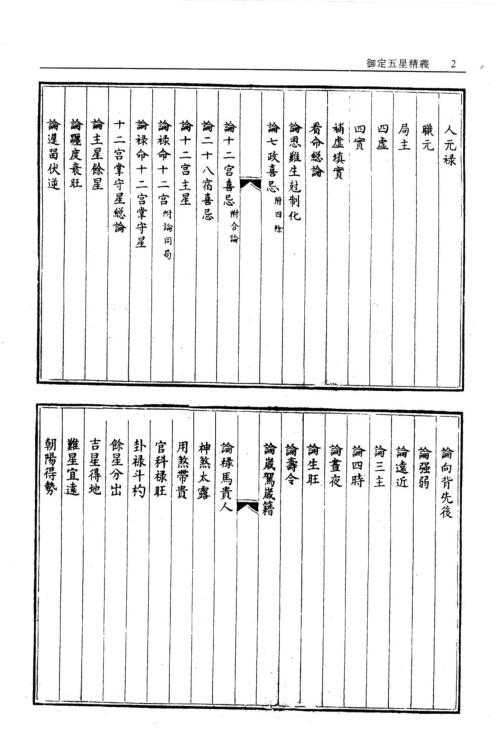 御定五星精義 2
人元祿
職元
局主
四虛
四實
補虛填實
看命總論
論恩難生尅制化
論七政喜忌附四餘
論十二宮喜忌附合論
論二十八宿喜忌
論十二宮主星
論祿命十二宮附論同局
論祿命十二宮掌守星
十二宮掌守星總論
論主星餘星
論躔度衰旺
論遲留伏逆
論向背先後
論强弱
論遠近
論三主
論四時
論晝夜
論生旺
論壽令
論歲駕歲籍
論祿馬貴人
神煞太露
用煞帶貴
官科祿旺
卦祿斗杓
餘星分出
吉星得地
難星宜遠
朝陽得勢